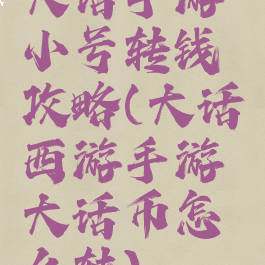 大话手游
小号转钱
攻略(大话
西游手游
大话币怎
么转)